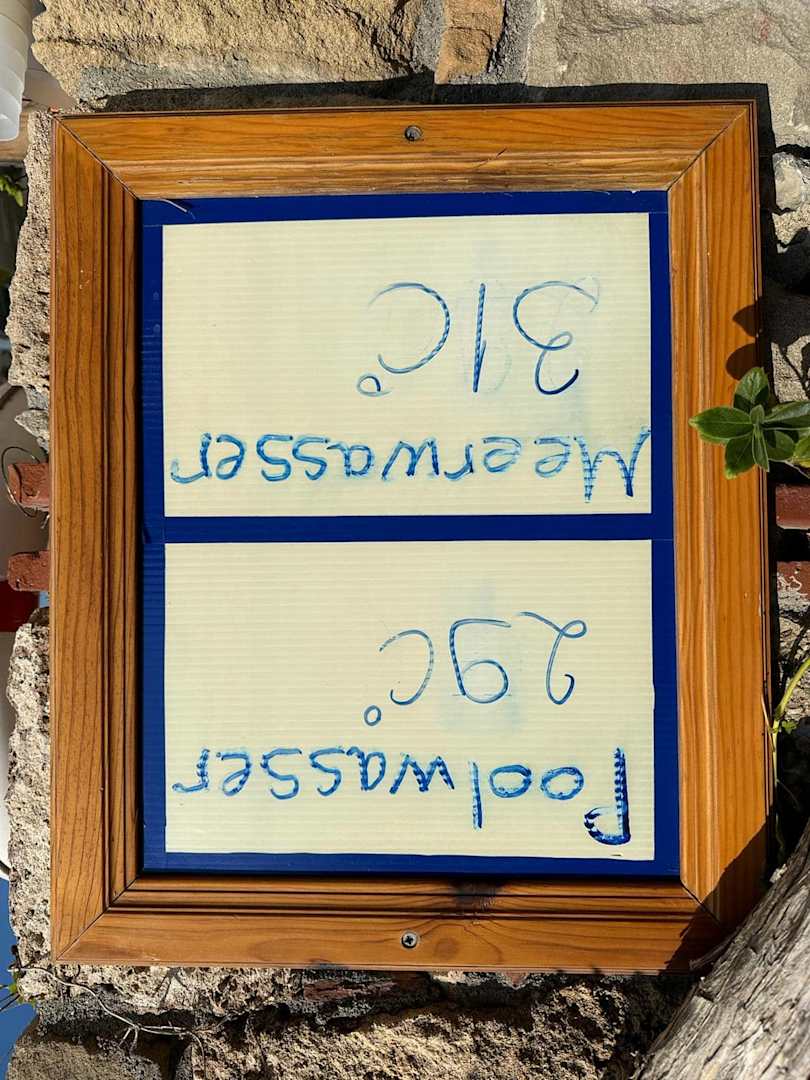 Poolwasser
29C°
Meerwasser
31C°